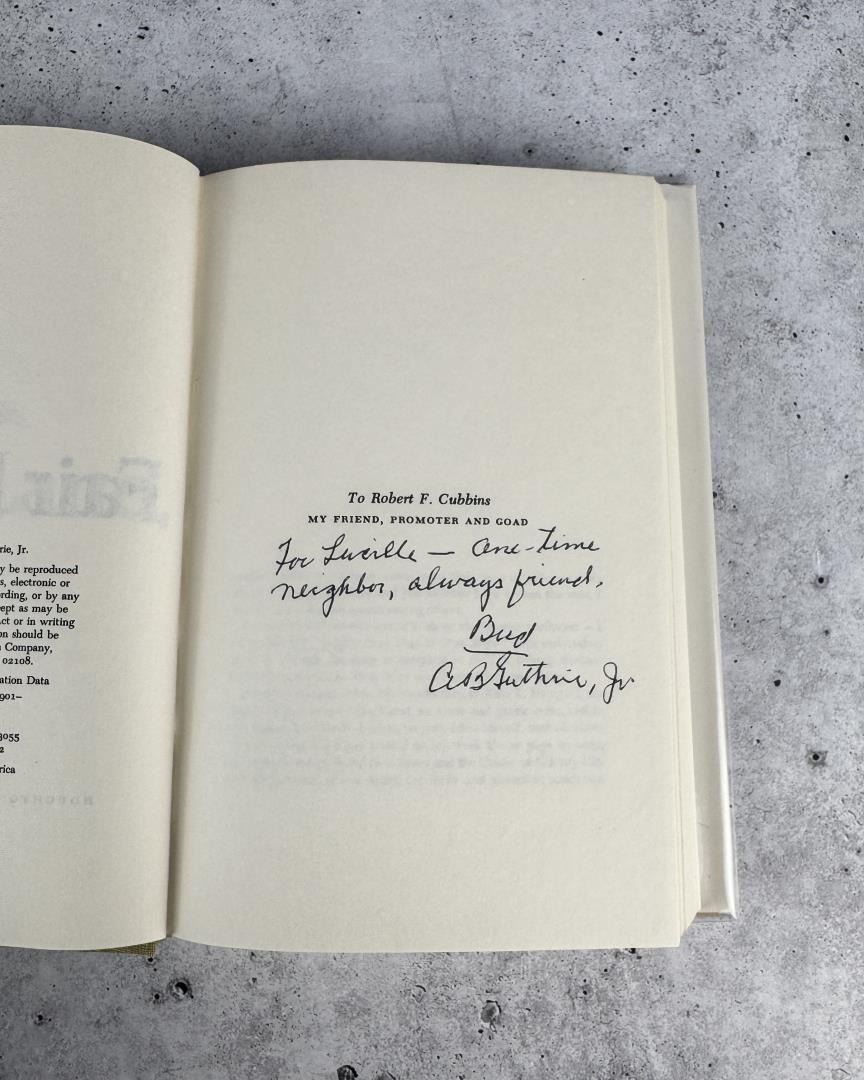 Fair
rie, Jr.
y be reproduced
s, electronic or
rding, or by any
ept as may be
ct or in writing
on should be
Company,
02108.
ation Data
901–
3055
2
rica
To Robert F. Cubbins
MY FRIEND, PROMOTER AND GOAD
For Lucille — One-time
neighbor, always friend.
Bud
A B Guthrie, Jr.